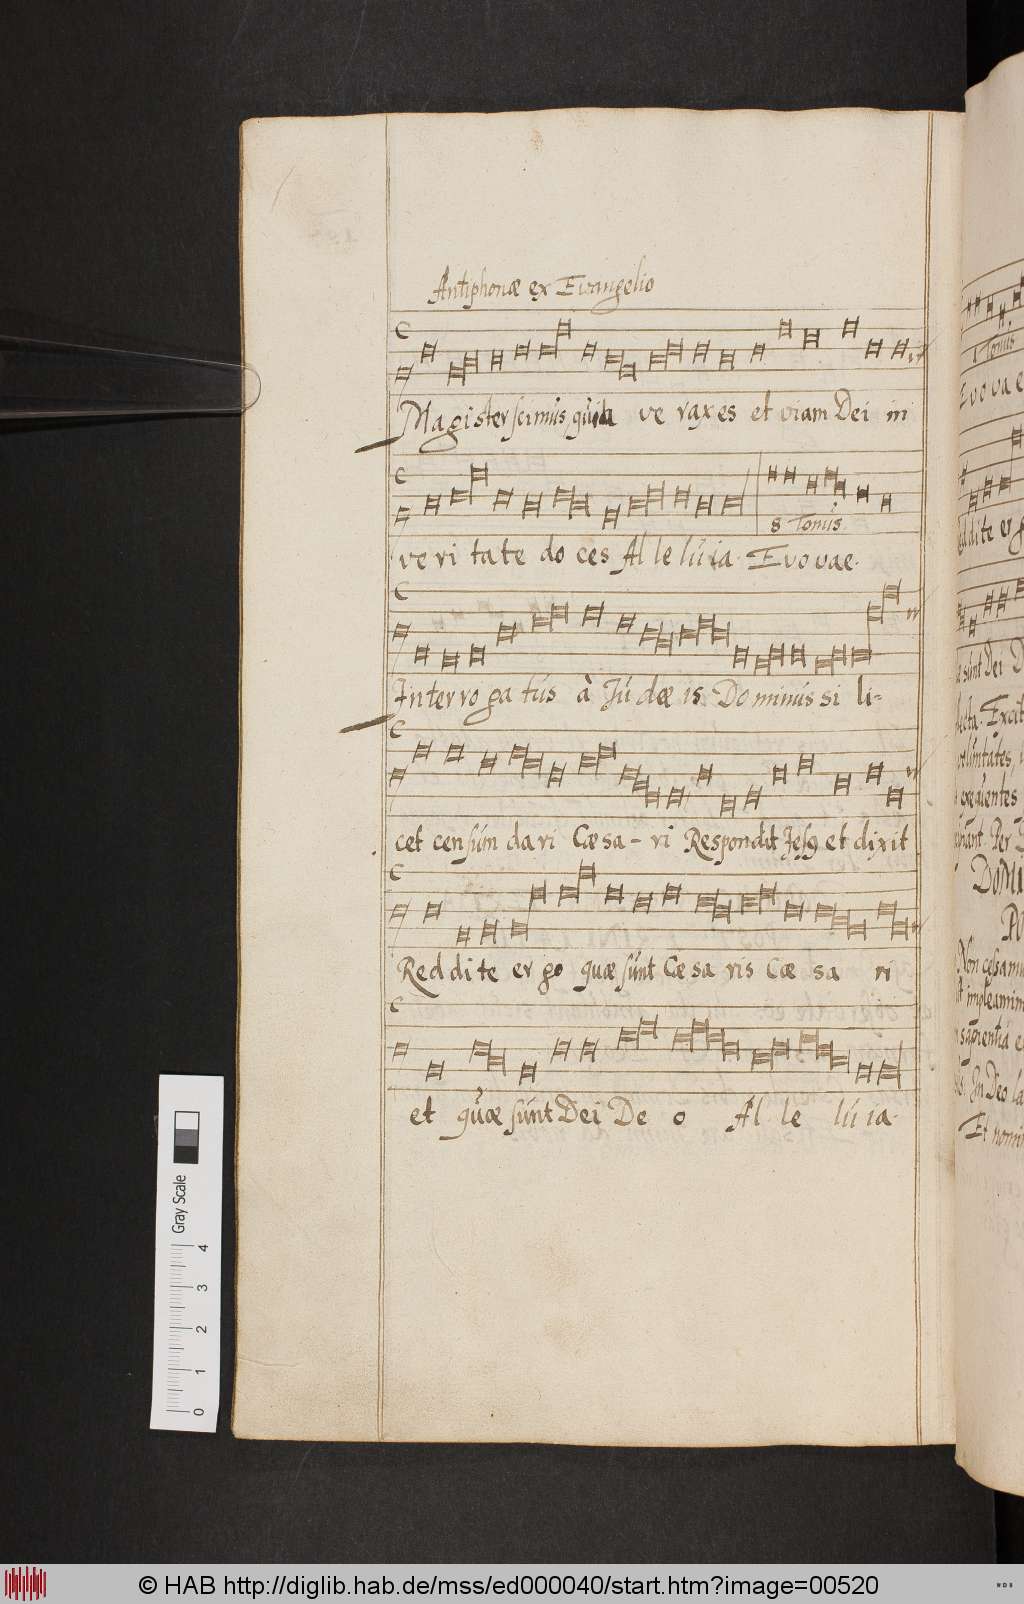 Antiphonæ ex Evangelio
Magister scimus quia ve rax es et viam Dei in
8 Tonus
ve ri ta te do ces Al le lu ia. Evovae.
Inter ro ga tus à Ju dæ is Do minus si li-
cet censum da ri Cæsa-ri Respondit Jesus et dixit
Red di te er go quæ sunt Cæ sa ris Cæ sa ri
et quæ sunt Dei De o Al le lu ia.
1 Tonus
Evovae
ddite erg
sunt Dei D
lecta. Excit
exequentes
Per
DOMI
Non cessamu
impleamin
sapientia e
In Deo la
Et nomin
Gray Scale
4
3
2
1
0
© HAB http://diglib.hab.de/mss/ed000040/start.htm?image=00520